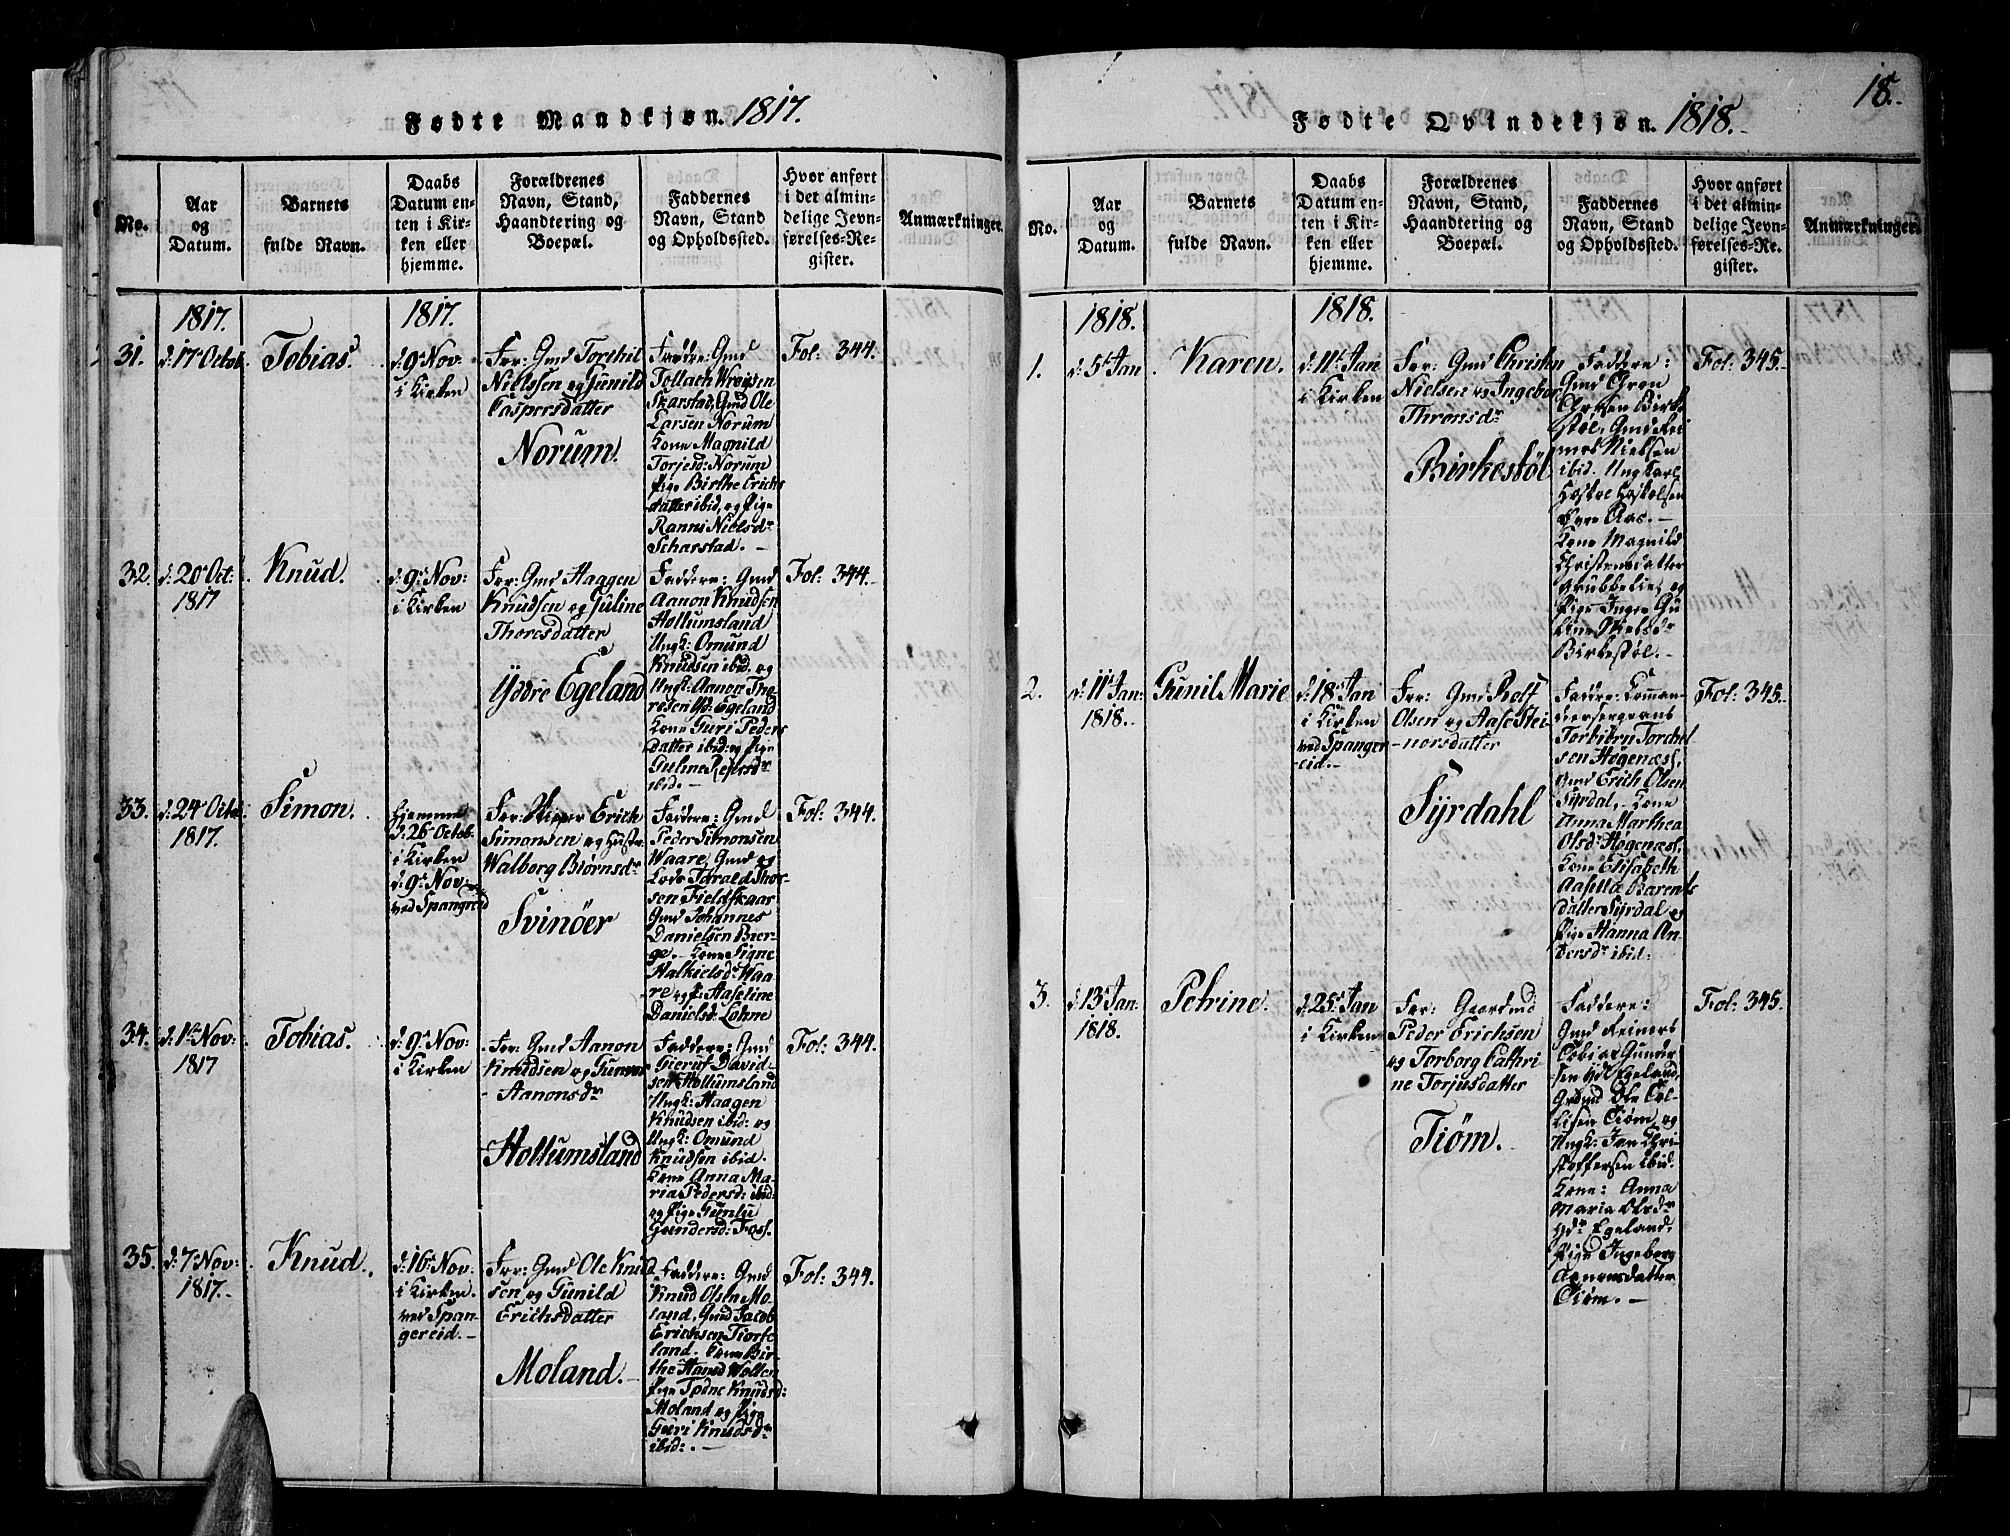 Fødte Mandkjøn. 1817.
No.
Aar
og
Datum.
Barnets
fulde Navn.
Daabs
Datum en-
ten i Kir-
ken eller
hjemme.
Forældrenes
Navn, Stand,
Haandtering og
Boepæl.
Faddernes
Navn, Stand
og Opholdssted.
Hvor anført
i det almin-
delige Jevn-
førelses-Re-
gister.
Anmærkninger.
1817.
1817.
31.
d: 17de Octob
Tobias.
d. 9de Nov:
i Kirken
For: Gmd Torchil
Nielssen og Gunild
Caspersdatter
Norum.
Faddere: Gmd
Tollach
Skarstad, Gmd Ole
Larsen Norum
Kone Magnild
Torjesd: Norum
Pige Birthe Erichs
datter ibid, og Pige
Ranni Nielsdr
Scharstad. -
Fol: 344.
32.
d: 20de Oct:
1817
Knud.
d: 9de Nov:
i Kirken
For: Gmd Haagen
Knudsen og Guline
Thoresdatter
Yddre Egeland
Faddere: Gmd
Aanon Knudsen
Hollumsland
Ungk: Omund
Knudsen ibid. og
Ungk: Aanon Tho
resen Yd: Egeland
Kone Guri Peders
datter ibid: og Pige
Guline
ibid. -
Fol: 344.
33.
d: 24de Octob
1817.
Simon.
Hjemme
d: 26de Octob.
i Kirken
d: 9de Nov:
ved Spangreid
For: Erich
Simonsen og Hustr.
Walborg Biørnsdr
Svinöer
Faddere: Gmd
Peder Simonsen
Waare, Gmd og
Lods Tarald Thor-
sen Fieldskaar
Gmd Johannes
Danielsen Bier-
ge. Kone Signe
Halkielsdr Waa-
re og P: Aaseline
Danielsd: Lohne
Fol: 344.
34.
d: 1ste Nov:
1817
Tobias.
d: 9de Nov:
i Kirken
For: Gmd Aanon
Knudsen og Gunvor
Aanonsdr
Hollumsland
Faddere: Gmd
Gieruf David-
sen Hollumsland
Ungk: Haagen
Knudsen ibid: og
Ungk: Omund
Knudsen ibid.
Kone Anna Ma-
ria Pedersd: ibid:
og Pige Gunlu
Gundersd: Foss.
Fol: 344.
35.
d: 7de Nov:
1817.
Knud.
d: 16de Nov.
i Kirken.
ved Span-
gereid.
For: Gmd Ole Knud
sen og Gunild
Erichsdatter
Moland.
Faddere: Gmd
Knud Olsen Mo-
land, Gmd Jacob
Erichsen Tiorte
land. Kone Bir-
the Hansd Wollen
Pige Tødne Knudsd:
Moland og Pige
Guri Knudsdr
ibid:. -
Fol: 344.
18.
Fødte Qvindekjøn. 1818.
No.
Aar
og
Datum.
Barnets
fulde Navn.
Daabs
Datum en-
ten i Kir-
ken eller
hjemme.
Forældrenes
Navn, Stand,
Haandtering og
Boepæl.
Faddernes
Navn, Stand
og Opholdssted.
Hvor anført
i det almin-
delige Jevn-
førelses-Re-
gister.
Anmærkninger.
1818.
1818.
1.
d: 5te Jan
Karen.
d: 11te Jan
i Kirken
For: Gmd Christen
Nielsen og Ingebor
Thronsdr
Birkestøl
Faddere:
Gmd Gron
Birke
støl, Gmd Rei
nert Nielsen
ibid. Ung Karl
Høskol Høskolsen
Fyre Aas.
Kone Magnild
Christensdatter
Grubbelie, og
Pige Inger Gu
line Nielsdr
Birkestøl.
Fol: 345.
2.
d: 11te Jan:
1818.
Gunil Marie
d: 18de Jan
i Kirken
ved Spanger
eid.
For: Gmd Rolf
Olsen og Aase Stei-
norsdatter
Syrdahl
Faddere: Coman-
deersergeant
Torbiørn Torchel-
sen Høgenæs,
Gmd Erich Olsen
Syrdal, Kone
Anna Marthea
Olsdr Høgenæs.
Kone Elisabeth
Aasilla Barents
datter Syrdal og
Pige Hanna An-
dersdr ibid:
Fol: 345.
3.
d: 13de Jan:
1818.
Petrine.
d: 25de Jan
i Kirken
For: Gaardmd
Peder Erichsen
og Torborg Cathri
ne Torjusdatter
Tiøm.
Faddere:
Gmd Reinert
Tobias Gunder
sen Yd: Egeland,
Grdmd Ole Col-
lisen Tiøm, og
Ungk: Jan Chri-
stoffersen ibid.
Kone: Anna
Maria Olsdr
Ydr Egeland,
Pige Ingeborg
Aanonsdatter
Tiøm. -
Fol: 345.